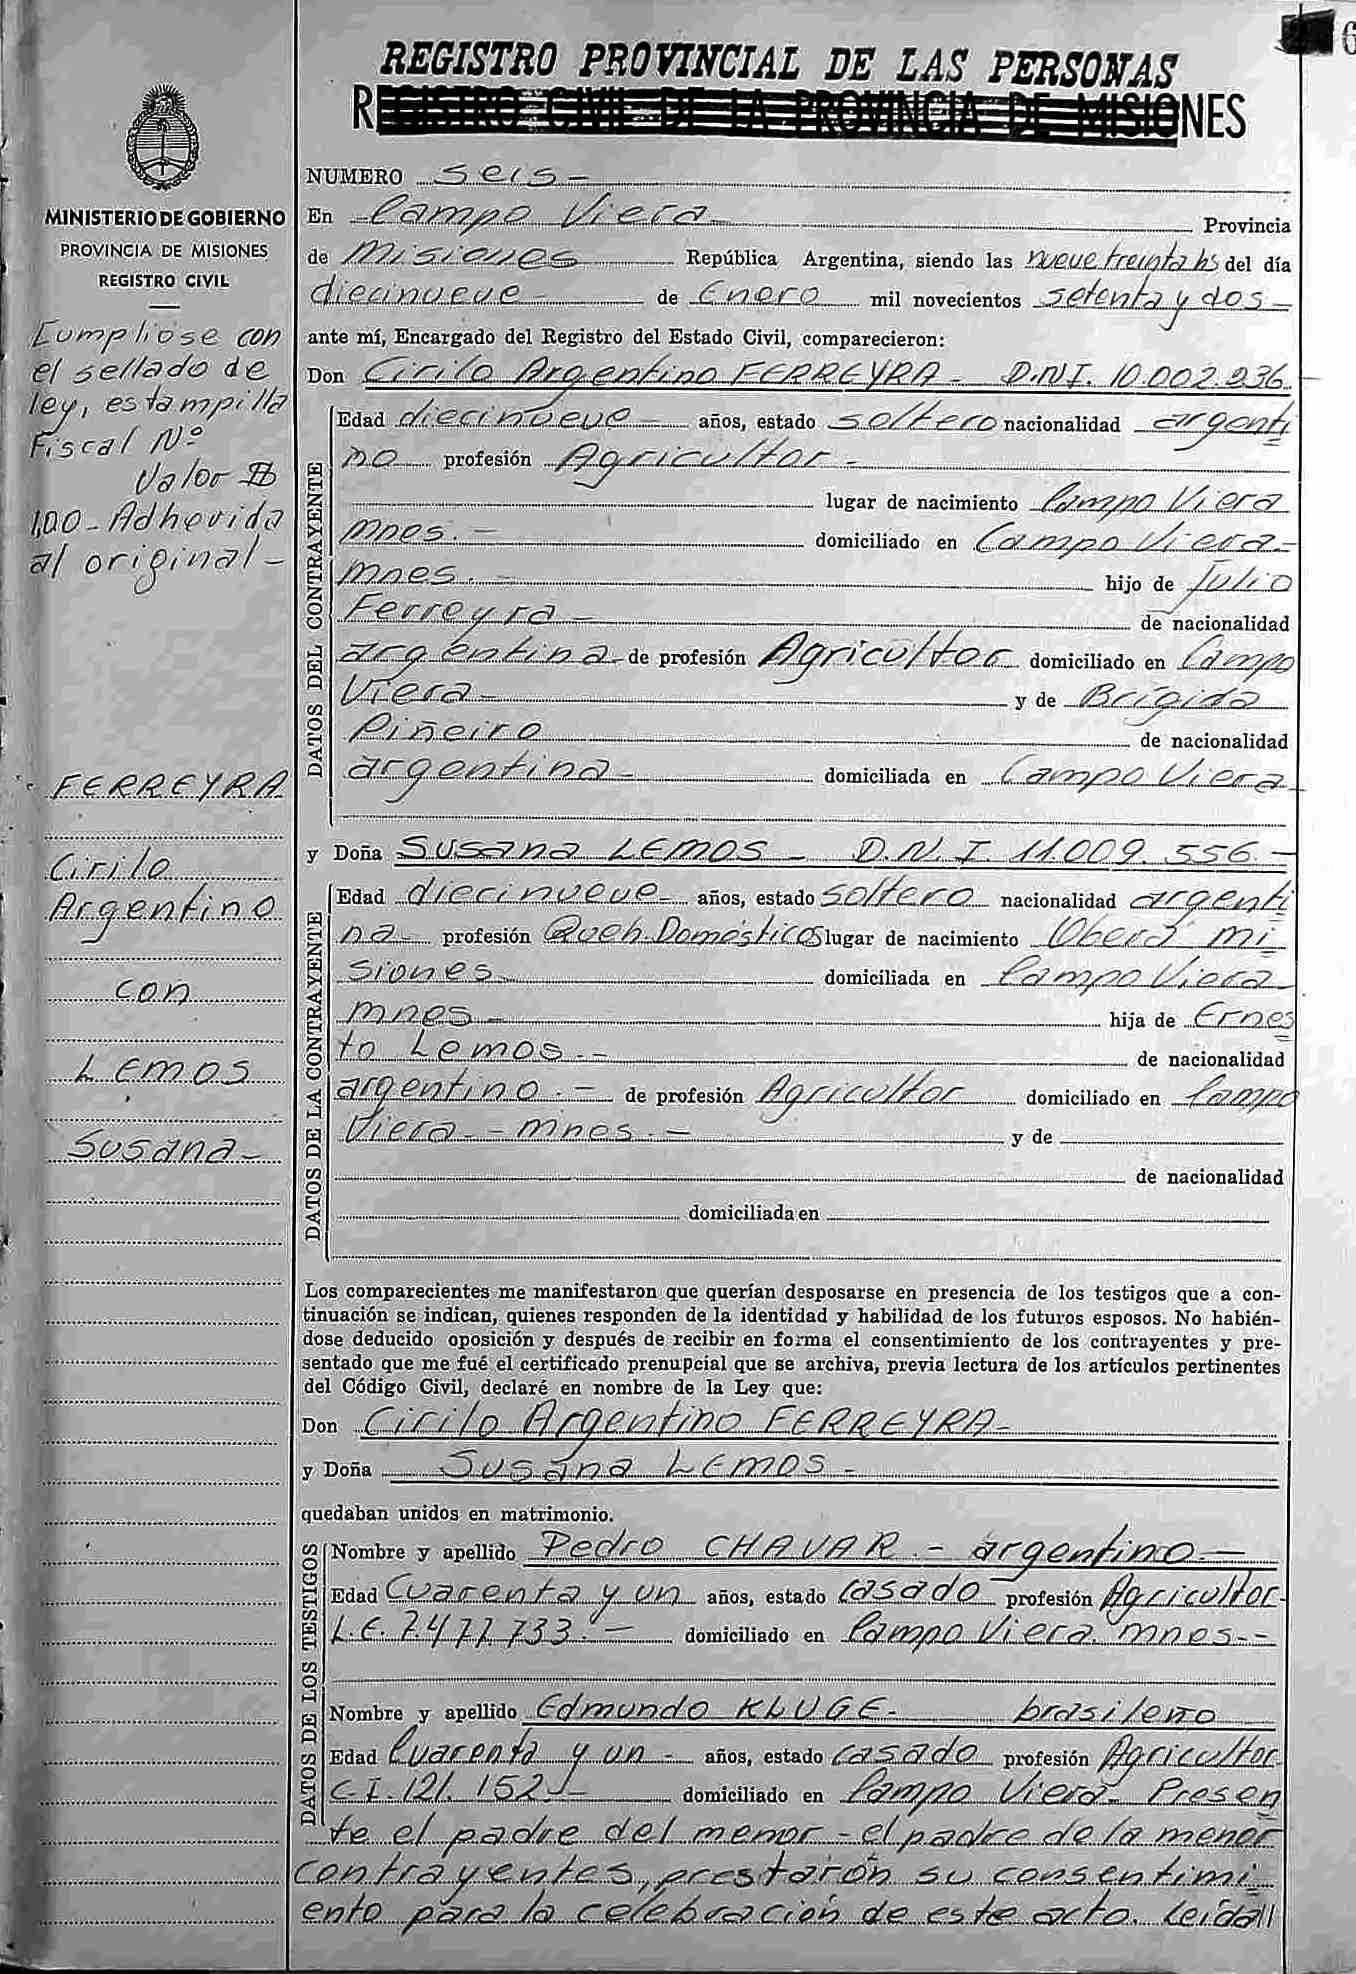 6
REGISTRO PROVINCIAL DE LAS PERSONAS
REGISTRO CIVIL DE LA PROVINCIA DE MISIONES
MINISTERIO DE GOBIERNO
PROVINCIA DE MISIONES
REGISTRO CIVIL
Cumpliose con
el sellado de
ley, estampilla
Fiscal Nº
Valor $
1,00 - Adherida
al original -
FERREYRA
Cirilo
Argentino
con
LEMOS
Susana -
NUMERO seis -
En Campo Viera Provincia
de Misiones República Argentina, siendo las nueve treinta hs del día
diecinueve - de Enero mil novecientos setenta y dos -
ante mí, Encargado del Registro del Estado Civil, comparecieron:
Don Cirilo Argentino FERREYRA - D.N.I. 10.002.936.
DATOS DEL CONTRAYENTE
Edad diecinueve - años, estado soltero nacionalidad argenti
no profesión Agricultor -
lugar de nacimiento Campo Viera
mnes. - domiciliado en Campo Viera -
mnes. - hijo de Julio
Ferreyra - de nacionalidad
argentina de profesión Agricultor domiciliado en Campo
Viera - y de Brígida
Piñeiro de nacionalidad
argentina - domiciliada en Campo Viera -
y Doña Susana LEMOS - D.N.I. 11.009.556 -
DATOS DE LA CONTRAYENTE
Edad diecinueve - años, estado soltero nacionalidad argenti
na - profesión Queh. Domésticos lugar de nacimiento Oberá mi
siones domiciliada en Campo Viera
mnes - hija de Ernes
to Lemos. - de nacionalidad
argentino. - de profesión Agricultor domiciliado en Campo
Viera - mnes. - y de
de nacionalidad
domiciliada en
Los comparecientes me manifestaron que querían desposarse en presencia de los testigos que a con-
tinuación se indican, quienes responden de la identidad y habilidad de los futuros esposos. No habién-
dose deducido oposición y después de recibir en forma el consentimiento de los contrayentes y pre-
sentado que me fué el certificado prenupcial que se archiva, previa lectura de los artículos pertinentes
del Código Civil, declaré en nombre de la Ley que:
Don Cirilo Argentino FERREYRA -
y Doña Susana LEMOS -
quedaban unidos en matrimonio.
DATOS DE LOS TESTIGOS
Nombre y apellido Pedro CHAVAR. - argentino -
Edad Cuarenta y un años, estado casado profesión Agricultor
L.E. 7.477.733. - domiciliado en Campo Viera. mnes. -
Nombre y apellido Edmundo KLUGE - brasileño
Edad Cuarenta y un - años, estado casado profesión Agricultor
C.I. 121.152 - domiciliado en Campo Viera - Presen
te el padre del menor - el padre de la menor
contrayentes, prestarón su consentimi
ento para la celebración de este acto. Leida ll